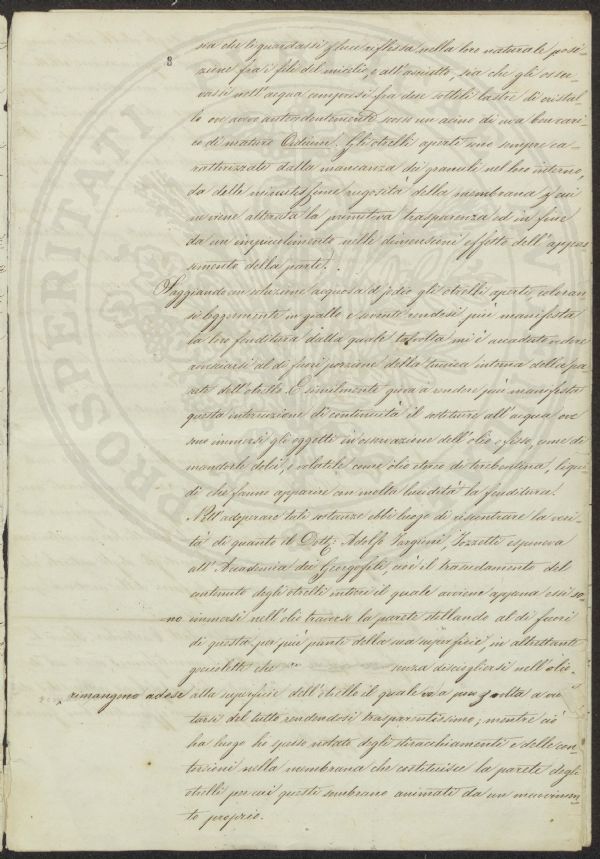 8
sia che li guardassi p luce riflessa nella loro naturale posi-
zione fra i fili del micelio, e all'asciutto, sia che gli osser-
vassi nell'acqua compresi fra due sottili lastre di cristal-
lo ove avevo antecedentemente un acino di uva ben cari-
co di maturo Oidium. Gli otrelli aperti sono sempre ca-
ratterizzati dalla mancanza dei granuli nel loro interno,
da delle minutissime rugosità della membrana p cui
ne viene alterata la primitiva trasparenza ed in fine
da un impiccolimento nelle dimensioni effetto dell'appas-
simento della parte.
Saggiando con soluzione acquosa di jodio gli otrelli aperti, coloran
si leggermente in giallo e sovente rendesi più manifesta
la loro fenditura dalla quale talvolta mi è accaduto vedere
avanzarsi al di fuori porzione della tunica interna della pa-
rete dell'otrello. E similmente giova a rendere più manifesta
questa interruzione di continuità il sostituire all'acqua ove
sono immersi gli oggetti in osservazione dell'olio fisso, come di
mandorle dolci, o volatile come olio etereo di trebentina, liqui-
di che fanno apparire con molta lucidità la fenditura.
Nell'adoperare tali sostanze ebbi luogo di riscontrare la veri-
tà di quanto il Dott: Adolfo Targioni, Tozzetti esponeva
all'Accademia dei Georgofili, cioè il trasudamento del
contenuto degli otrelli interi il quale avviene appena essi so-
no immersi nell'olio traverso la parete stillando al di fuori
di questa per più punti della sua superficie, in altrettante
goccioletti che senza disciogliersi nell'olio
rimangono adese alla superficie dell'otrello il quale va a poco p volta a vuo
tarsi del tutto rendendosi trasparentissimo; mentre ciò
ha luogo ho spesso notato degli stiracchiamenti e delle con-
torsioni nella membrana che costituisce la parete degli
otrelli per cui questi sembrano animati da un movimen-
to proprio.
PROSPERITATI